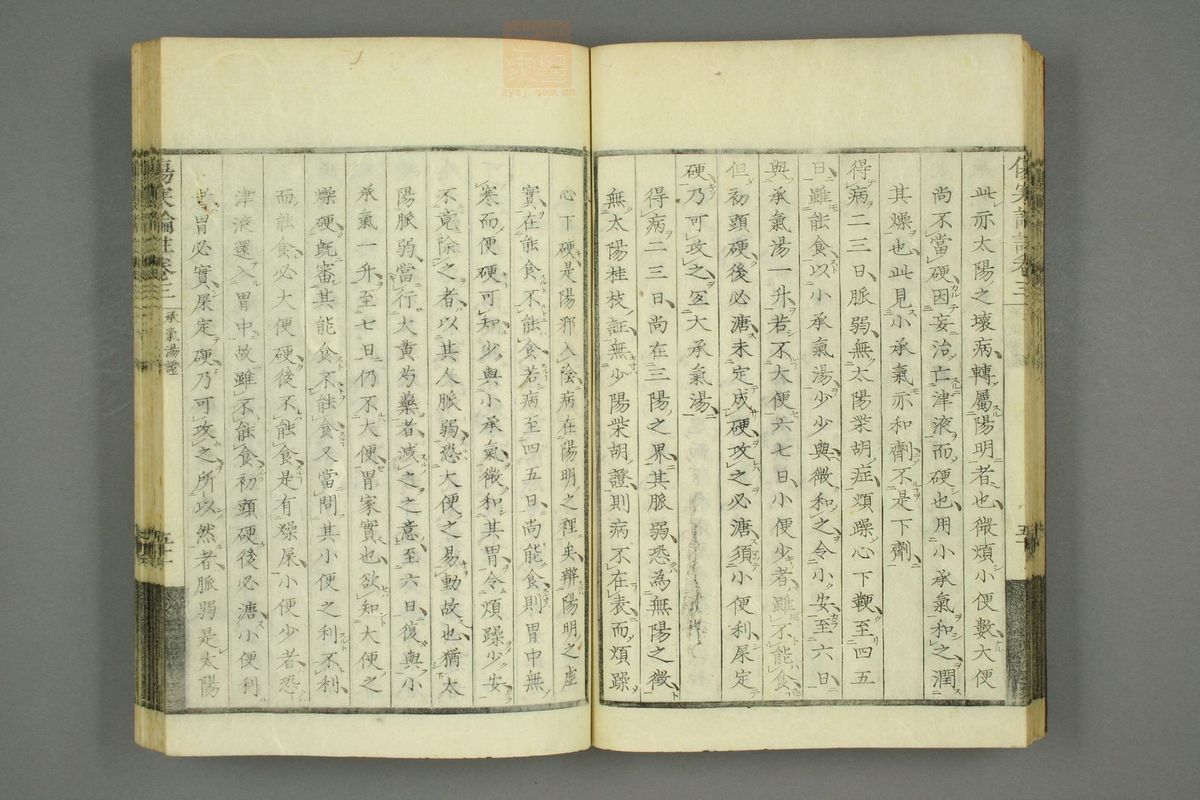 此亦太陽之壞病轉屬陽明者也微煩小便數大便
尚不當硬因妄治亡津液而硬也用小承氣和之潤
其燥也此見小承氣亦和劑不是下劑
得病二三日脈弱無太陽柴胡症煩躁心下鞕至四五
日雖能食以小承氣湯少少與微和之令小安至六日
與承氣湯一升若不大便六七日小便少者雖不能食
但初頭硬後必溏未定成硬攻之必溏須小便利屎定
硬乃可攻之宜大承氣湯
得病二三日尚在三陽之界其脈弱恐為無陽之徵
無太陽桂枝証無少陽柴胡證則病不在表而煩躁
心下硬是陽邪入陰病在陽明之裡矣辦陽明之虛
實在能食不能食若病至四五日尚能食則胃中無
寒而便硬可知少與小承氣微和其胃令煩躁少安
不竟除之者以其人脈弱恐大便之易動故也猶太
陽脈弱當行大黃芍藥者減之之意至六日復與小
承氣一升至七日仍不大便胃家實也欲知大便之
燥硬既審其能食不能食又當問其小便之利不利
而能食必大便硬後不能食是有燥屎小便少者恐
津液還入胃中故雖不能食初頭硬後必溏小便利
者胃必實屎定硬乃可攻之所以然者脈弱是太陽
傷寒論註卷三 承氣湯證
zysj.com.cn